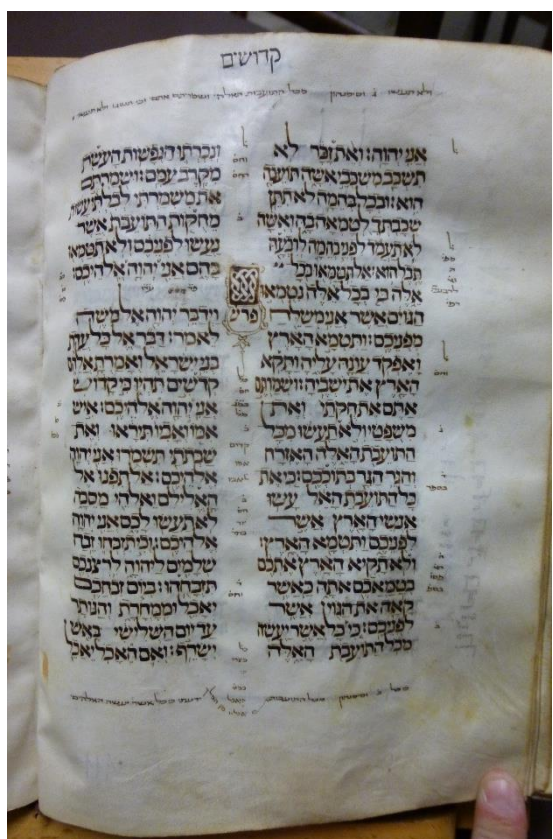 קדושים
אני יהוה: ואת זכר לא
תשכב משכבי אשה תועבה
הוא: ובכל בהמה לא תתן
שכבתך לטמאה בה ואשה
לא תעמד לפני בהמה לרבעה
תבל הוא: אל תטמאו בכל
אלה כי בכל אלה נטמאו
הגוים אשר אני משלח
מפניכם: ותטמא הארץ
ואפקד עונה עליה ותקא
הארץ את ישביה: ושמרתם
אתם את חקתי ואת
משפטי ולא תעשו מכל
התועבת האלה האזרח
והגר הגר בתוככם: כי את
כל התועבת האל עשו
אנשי הארץ אשר
לפניכם ותטמא הארץ:
ולא תקיא הארץ אתכם
בטמאכם אתה כאשר
קאה את הגוי אשר
לפניכם: כי כל אשר יעשה
מכל התועבת האלה
פרש
ונכרתו הנפשות העשת
מקרב עמם: ושמרתם
את משמרתי לבלתי עשות
מחקות התועבת אשר
נעשו לפניכם ולא תטמאו
בהם אני יהוה אלהיכם:
וידבר יהוה אל משה
לאמר: דבר אל כל עדת
בני ישראל ואמרת אלהם
קדשים תהיו כי קדוש
אני יהוה אלהיכם: איש
אמו ואביו תיראו ואת
שבתתי תשמרו אני יהוה
אלהיכם: אל תפנו אל
האלילם ואלהי מסכה
לא תעשו לכם אני יהוה
אלהיכם: וכי תזבחו זבח
שלמים ליהוה לרצנכם
תזבחהו: ביום זבחכם
יאכל וממחרת והנותר
עד יום השלישי באש
ישרף: ואם האכל יאכל